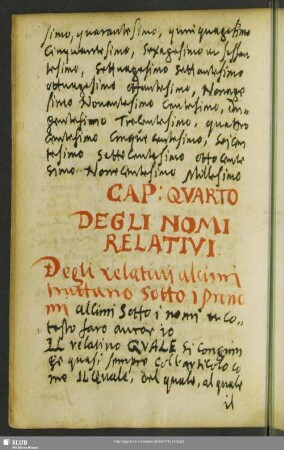 simo, quarantesimo, quinquagesimo
Cinquantesimo, Sexagesimo uel sessan-
tesimo, Settuagesimo Settantesimo
ottuagesimo ottantesimo, Nonage-
simo Nonantesimo Centesimo,
Trecentesimo, quattro
centesimo Cinque centesimo, Seicen-
tesimo Sette Centesimo otto Cente
simo Nove Centesimo Millesimo
CAP: QVARTO
DEGLI NOMI
RELATIVI.
Degli relativi alcuni
trattano sotto i prono
mi alcuni sotto i nomi
faro ancor io
IL relativo QVALE si congiun-
ge quasi sempre coll'articolo co
me Il Quale, del quale, al quale
il
SLUB